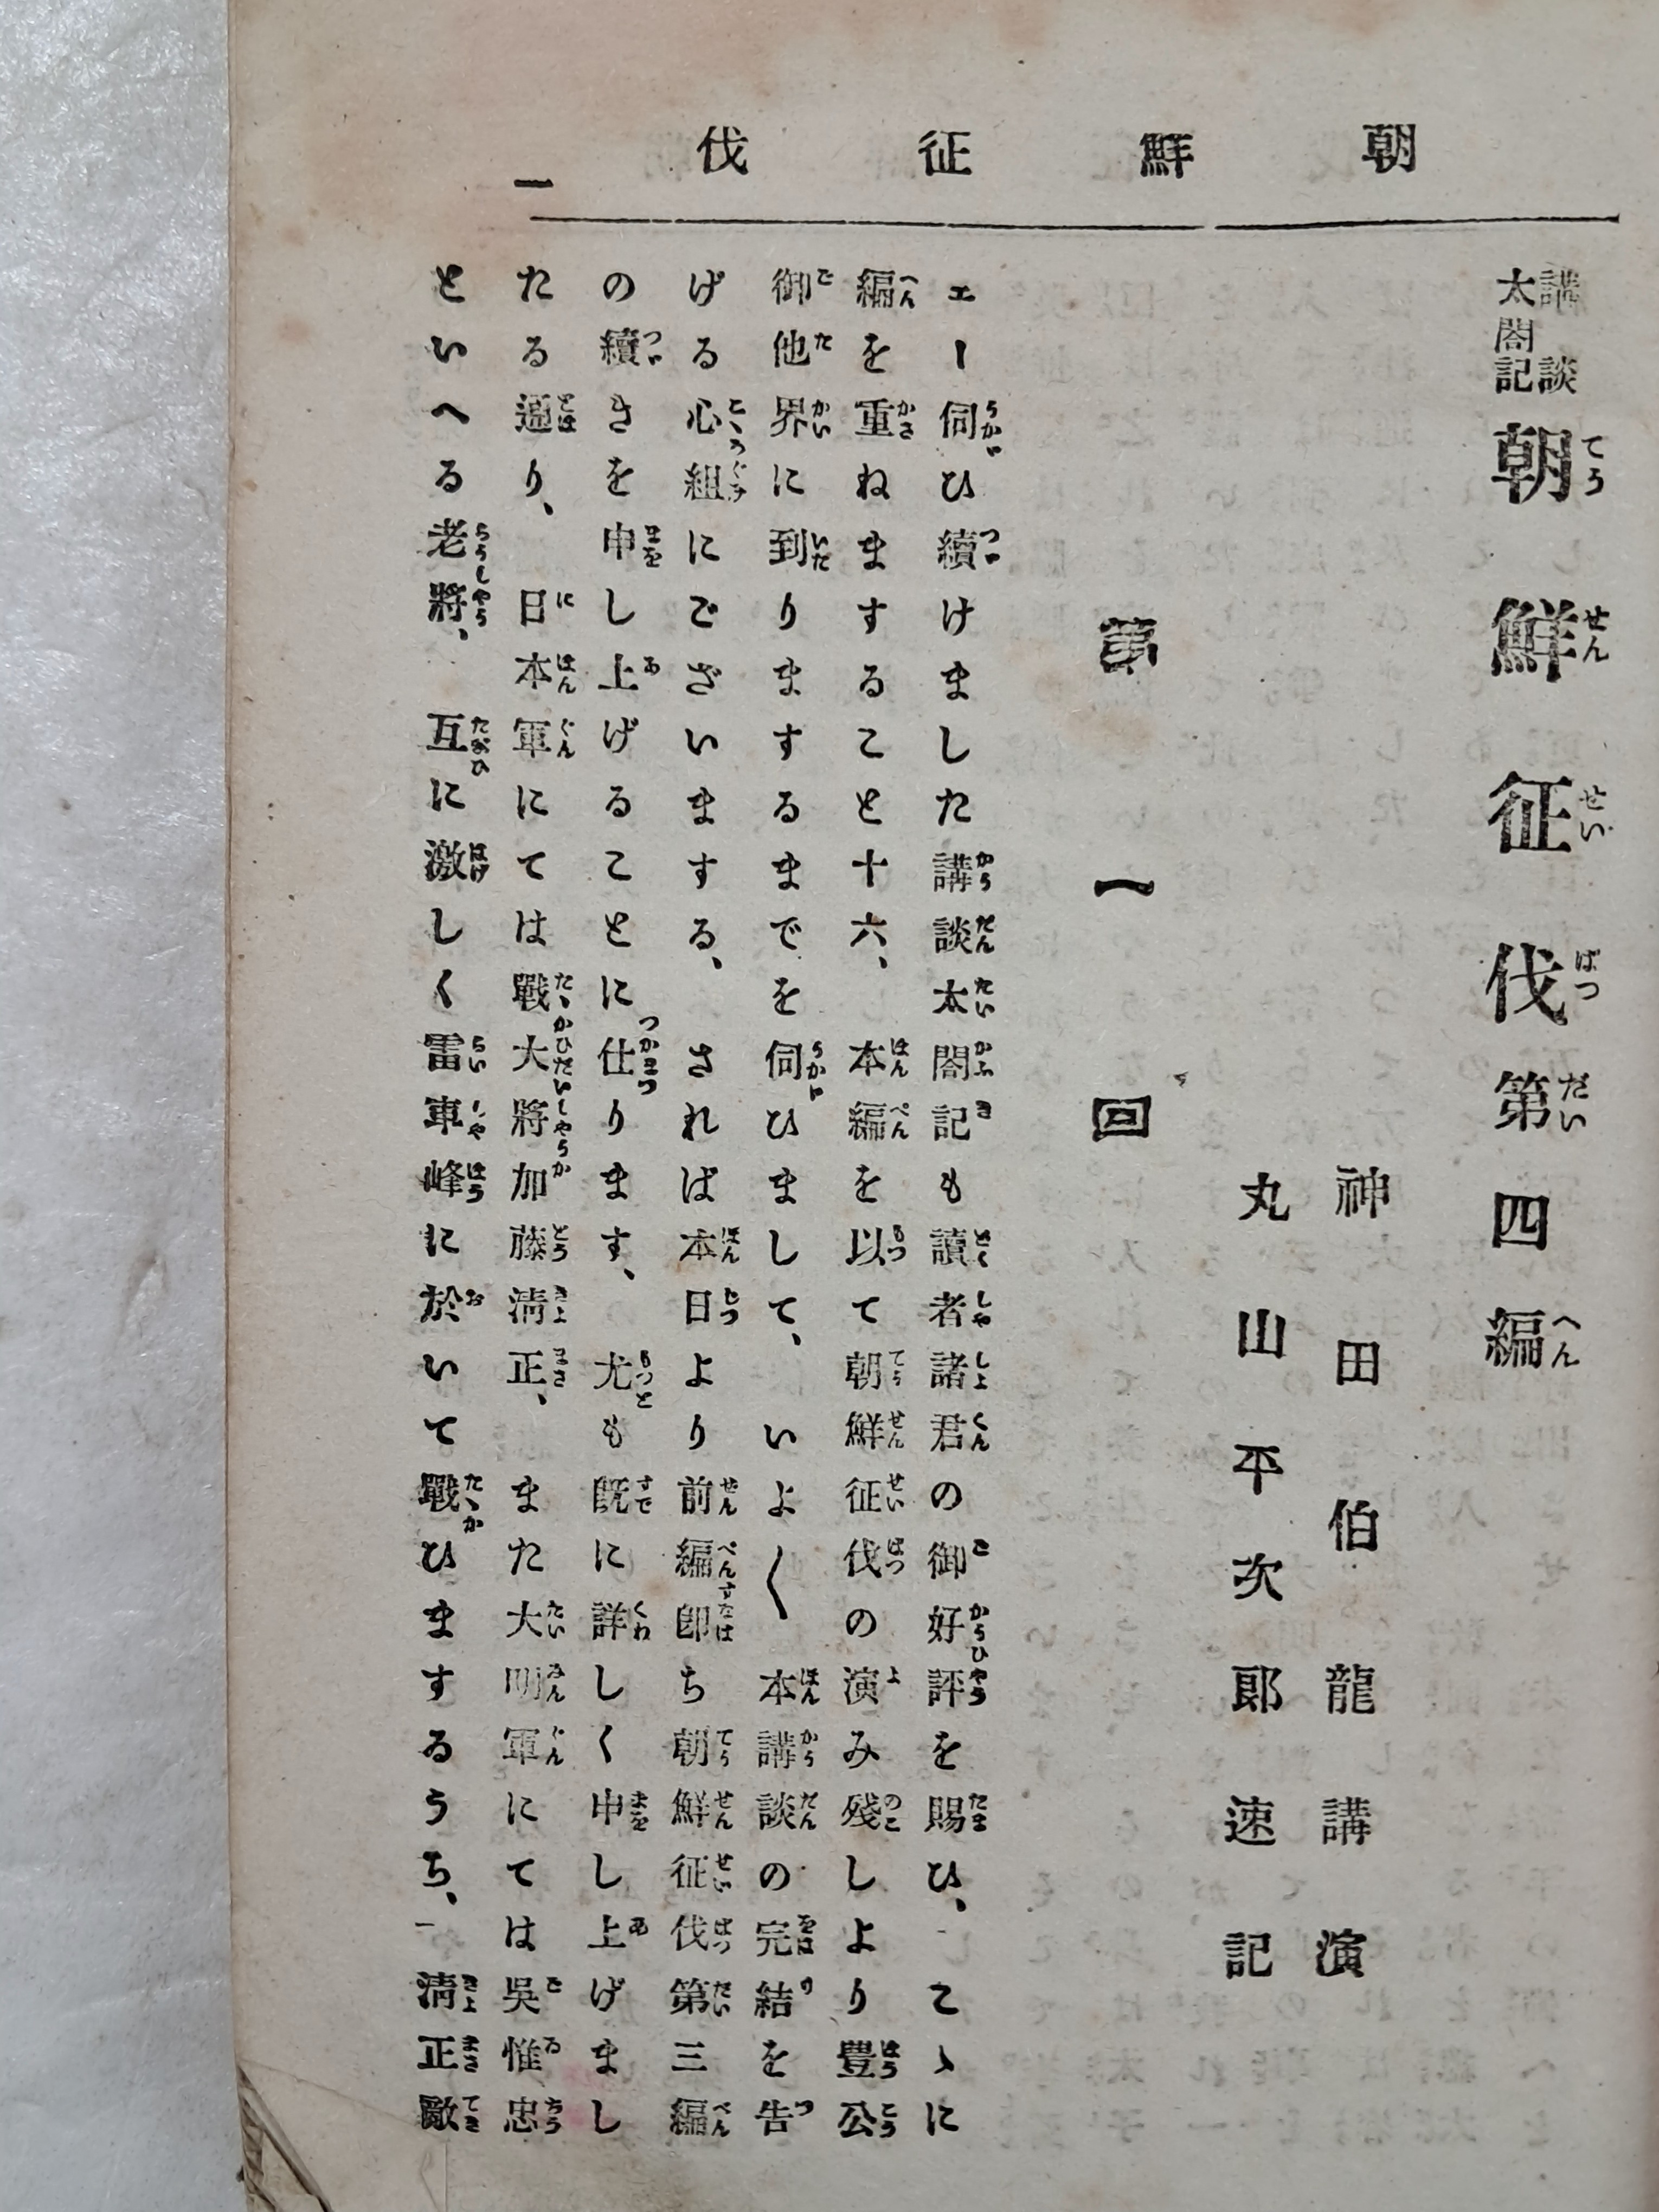 朝鮮征伐
一
講談
太閤記
朝鮮征伐第四編
神田伯龍講演
丸山平次郎速記
第一回
エー伺ひ續けました講談太閤記も讀者諸君の御好評を賜ひ、こゝに
編を重ねますること十六、本編を以て朝鮮征伐の演み殘しより豊公
御他界に到りまするまでを伺ひまして、いよ〳〵本講談の完結を告
げる心組にございまする、されば本日より前編即ち朝鮮征伐第三編
の續きを申し上げることに仕ります、尤も既に詳しく申し上げまし
たる通り、日本軍にては戰大將加藤淸正、また大明軍にては吳惟忠
といへる老將、互に激しく雷車峰に於いて戰ひまするうち、淸正敵